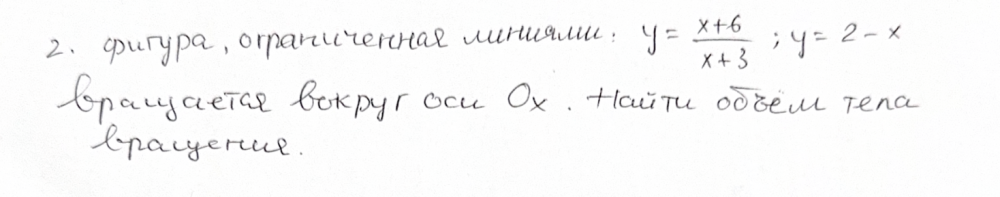 2. фигура, ограниченная линиями: y = \frac{x+6}{x+3} ; y = 2 - x
вращается вокруг оси Ox. Найти объём тела
вращения.